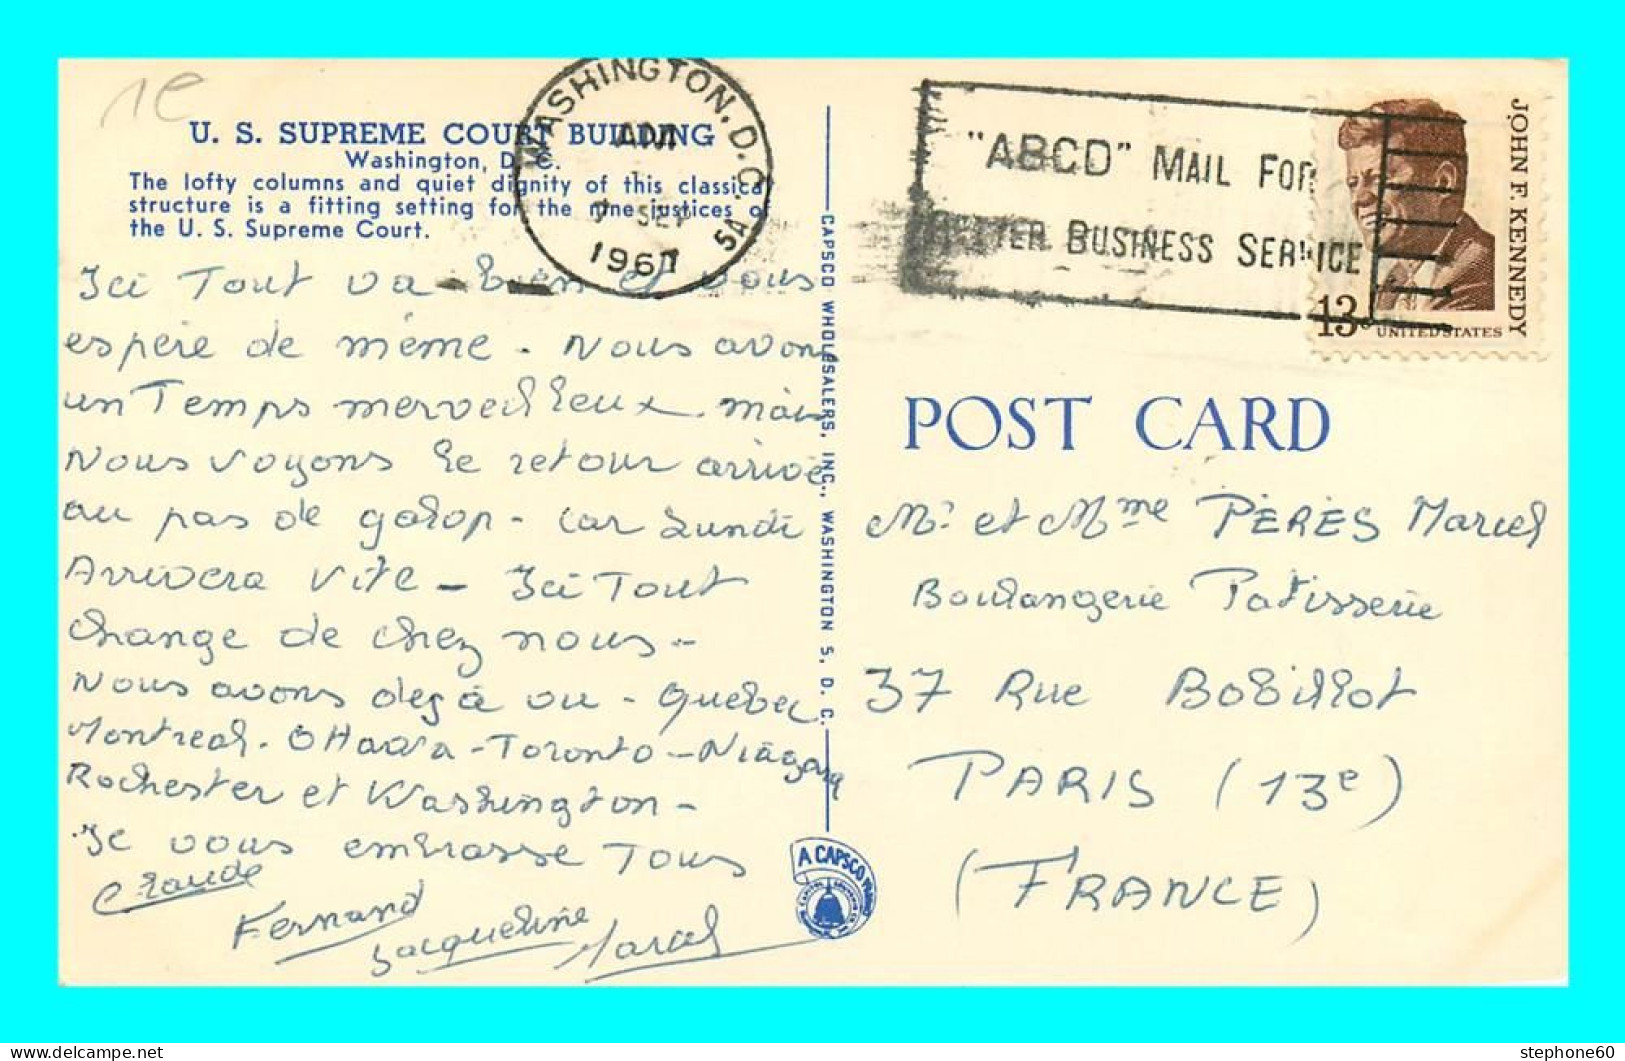 1€
U. S. SUPREME COURT BUILDING
Washington, D. C.
The lofty columns and quiet dignity of this classical
structure is a fitting setting for the nine justices of
the U. S. Supreme Court.
WASHINGTON, D.C.
AM
SEP
1967
"ABCD" MAIL FOR
BETTER BUSINESS SERVICE
JOHN F. KENNEDY
13c
UNITED STATES
Ici Tout va bien et vous
espère de même. Nous avons
un Temps merveilleux. mais
Nous voyons le retour arrivé
au pas de galop - Car Lundi
Arrivera vite - Ici Tout
change de chez nous -
Nous avons déjà vu - Quebec
Montreal - Ottawa - Toronto - Niagara
Rochester et Washington -
Je vous embrasse Tous
Claude
Fernand
Jacqueline
Marcel
CAPSCO WHOLESALERS, INC., WASHINGTON 5, D. C.
A CAPSCO PRODUCT
POST CARD
Mr et Mme PÉRÈS Marcel
Boulangerie Patisserie
37 Rue Bobillot
PARIS (13e)
(FRANCE)
stephone60